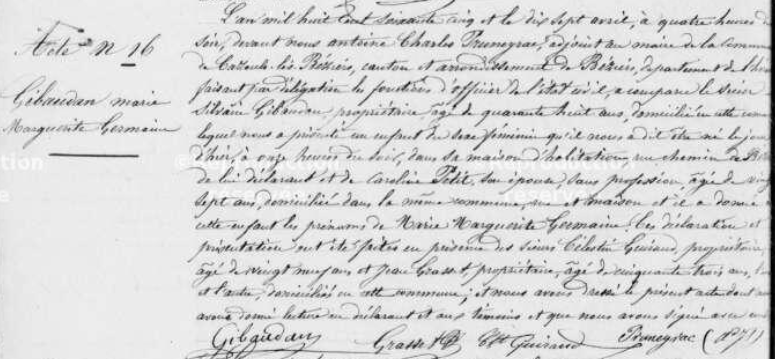 Acte N 16
Gibaudan marie
Marguerite Germaine
L'an mil huit cent soixante cinq et le dix sept avril, à quatre heures du
soir, devant nous antoine Charles Pruneyrac, adjoint au maire de la commune
de Cazouls-lès-Béziers, canton et arrondissement de Béziers, département de l'hér
faisant par délégation les fonctions d'officier de l'état civil, a comparu le sieur
Silvain Gibaudan, propriétaire, âgé de quarante huit ans, domicilié en cette comm
lequel nous a présenté un enfant du sexe féminin qu'il nous a dit être né le jour
d'hier, à onze heures du soir, dans sa maison d'habitation, rue chemin de
de lui déclarant et de Caroline Petit, son épouse, sans profession, âgée de ving
sept ans, domiciliée dans la même commune, rue et maison et il a donné à
cette enfant les prénoms de Marie Marguerite Germaine. Ces déclaration et
présentation ont été faites en présence des sieurs Célestin Guiraud, propriétaire
âgé de vingt neuf ans et jean Grasset, propriétaire, âgé de cinquante trois ans, l'un
et l'autre, domiciliés en cette commune; et nous avons dressé le présent acte dont nous
avons donné lecture au déclarant et aux témoins et que nous avons signé avec eux
Gibaudan Grasset Guiraud Pruneyrac